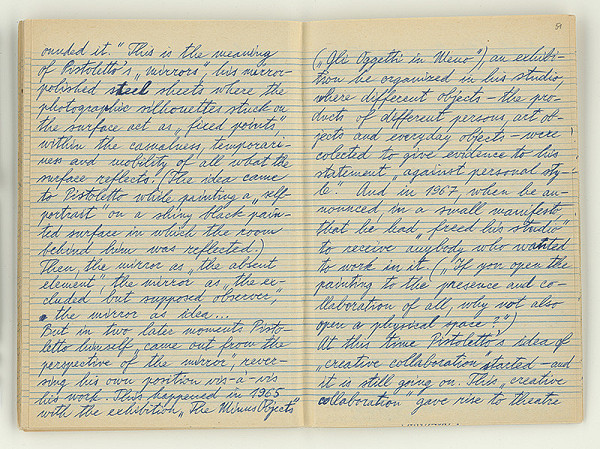 ounded it." This is the meaning
of Pistoletto's „mirrors", his mirror-
polished steel sheets where the
photographic silhouettes stuck on
the surface act as „fixed points"
within the casualness, temporari-
ness and mobility of all what the
surface reflects. (The idea came
to Pistoletto while painting a „self
portrait" on a shiny black pain-
ted surface in which the room
behind him was reflected.)
Then, the mirror as „the absent
element", the mirror as „the ex-
cluded but supposed observer",
the mirror as idea...
But in two later moments Pisto-
letto himself came out from the
perspective of „the mirror", rever-
sing his own position vis-à-vis
his work. This happened in 1965
with the exhibition „The Minus Objects"
51
(„Gli Oggetti in Meno"), an exhibi-
tion he organized in his studio,
where different objects – the pro-
ducts of different persons, art ob-
jects and everyday objects – were
colected to give evidence to his
statement „against personal sty-
le". And in 1967, when he an-
nounced in a small manifesto
that he had „freed his studio"
to receive „anybody who wanted
to work in it. („If you open the
painting to the presence and co-
llaboration of all, why not also
open a physical space?")
At this time Pistoletto's idea of
„creative collaboration" started – and
it is still going on. This „creative
collaboration" gave rise to theatre